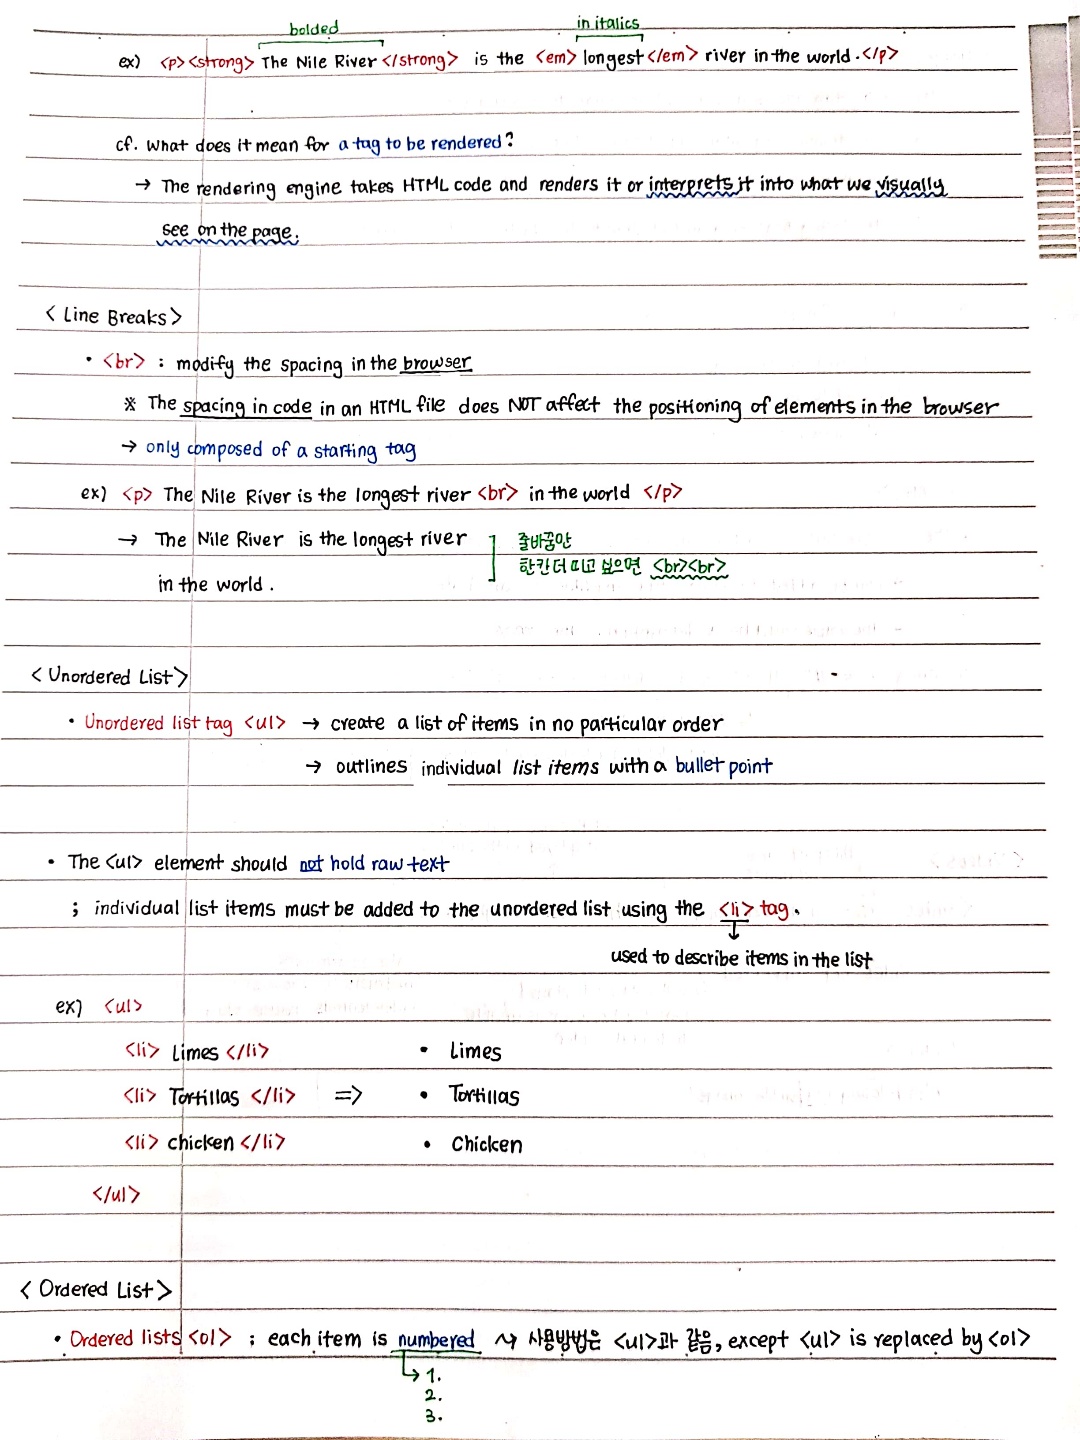 bolded in italics
ex) <p><strong> The Nile River </strong> is the <em> longest </em> river in the world. </p>
cf. What does it mean for a tag to be rendered?
→ The rendering engine takes HTML code and renders it or interprets it into what we visually
see on the page.
< Line Breaks >
• <br> : modify the spacing in the browser
※ The spacing in code in an HTML file does NOT affect the positioning of elements in the browser
→ only composed of a starting tag
ex) <p> The Nile River is the longest river <br> in the world </p>
→ The Nile River is the longest river 줄바꿈만
한칸 더 띄고 싶으면 <br><br>
in the world.
< Unordered List >
• Unordered list tag <ul> → create a list of items in no particular order
→ outlines individual list items with a bullet point
• The <ul> element should not hold raw text
; individual list items must be added to the unordered list using the <li> tag.
↓
used to describe items in the list
ex) <ul>
<li> Limes </li> • Limes
<li> Tortillas </li> => • Tortillas
<li> chicken </li> • Chicken
</ul>
< Ordered List >
• Ordered lists <ol> ; each item is numbered ↝ 사용방법은 <ul>과 같음, except <ul> is replaced by <ol>
↳ 1.
2.
3.